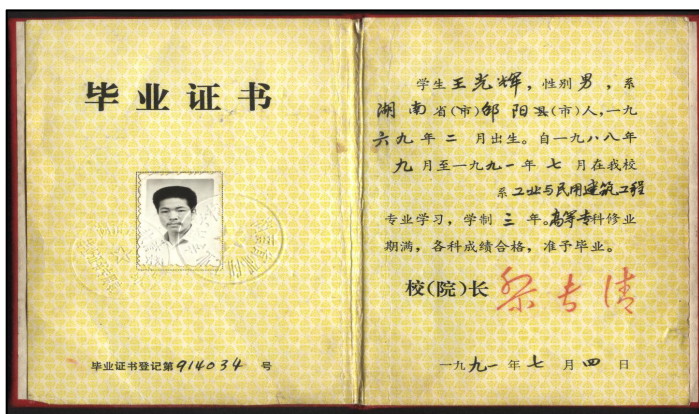 毕业证书
毕业证书登记第914034号
学生王光辉，性别男，系
湖南省(市)邵阳县(市)人，一九
六九年二月出生。自一九八八年
九月至一九九一年七月在我校
系工业与民用建筑工程
专业学习，学制三年。高等专科修业
期满，各科成绩合格，准予毕业。
校(院)长
一九九一年七月四日